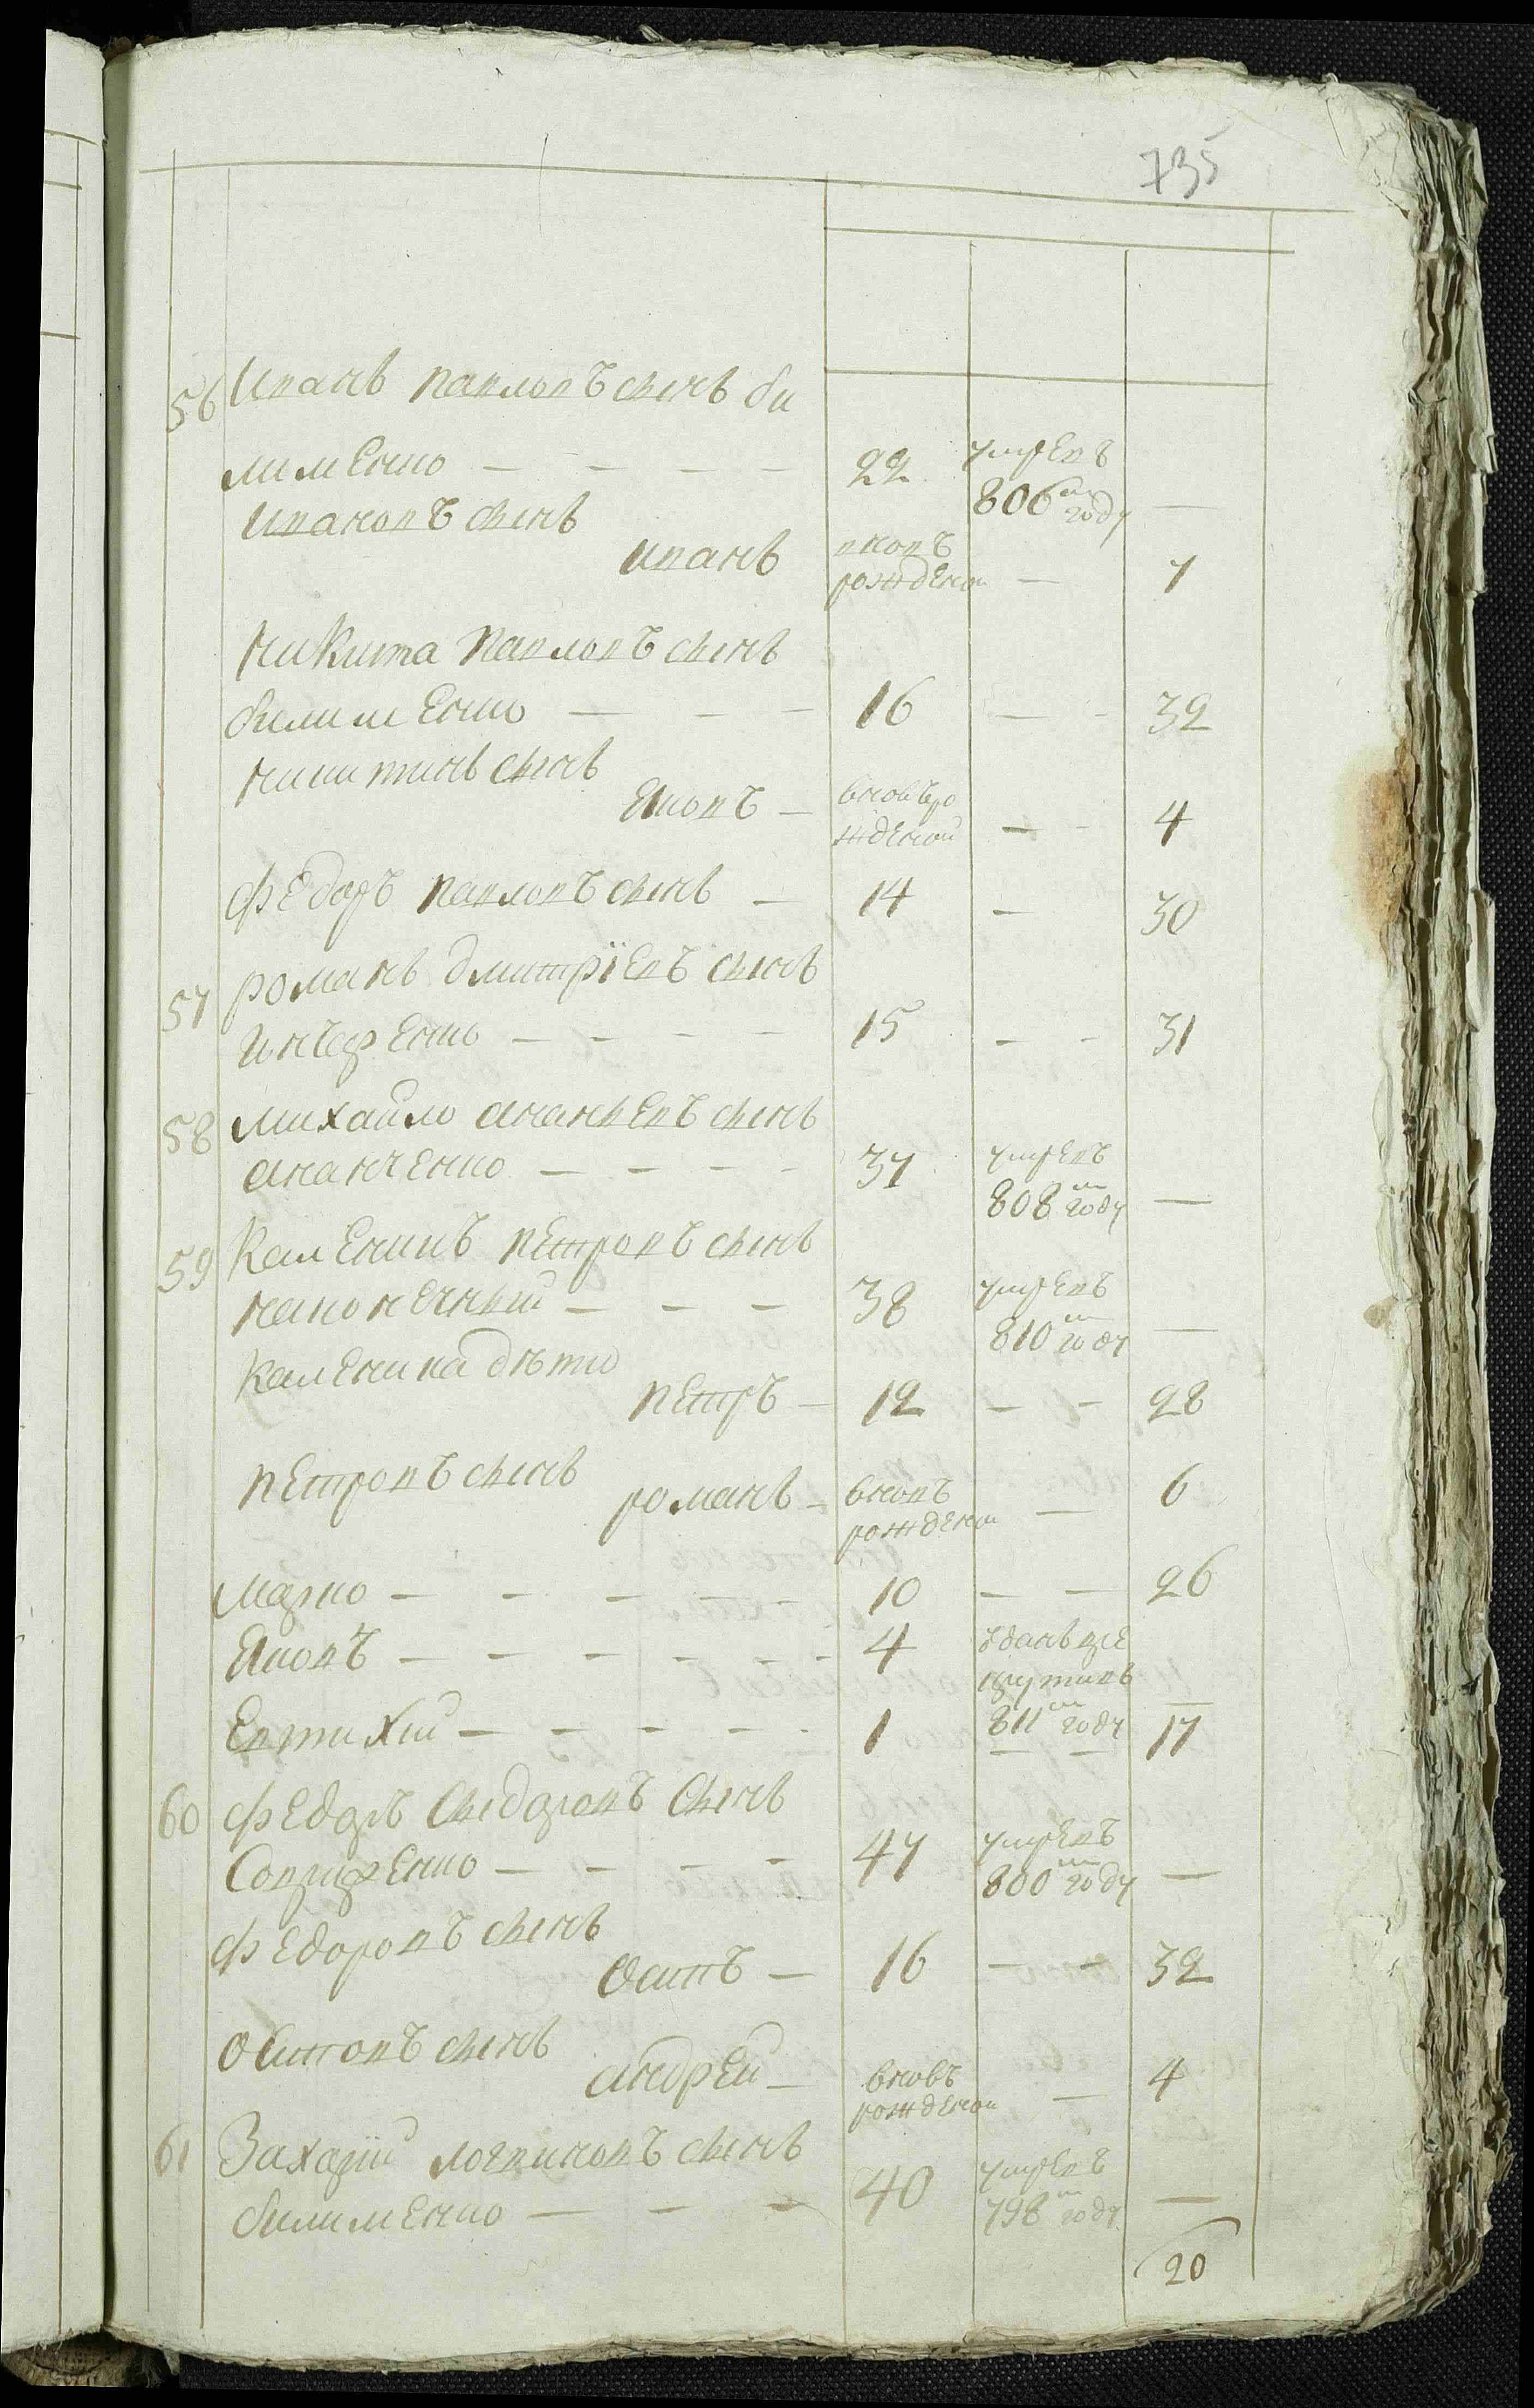 735
56 Иванъ павловъ сынъ би
лименко — — — — 22 умревъ
806м году —
ивановъ сынъ
иванъ вновъ рожденои — 7
никита павловъ сынъ
билименко — — — 16 — - 32
никитинъ сынъ
Яковъ — вновъ рожденои — - 4
федоръ павловъ сынъ — 14 — 30
57 романъ дмитрїевъ сынъ
— — — — 15 — - 31
58 михаило ананьевъ сынъ
ананченко — — — — 37 умревъ
808м году —
59 каленикъ петровъ сынъ
наконечный — — — 38 умревъ
810м году —
каленика дѣти
петръ — 12 — - 28
петровъ сынъ
романъ — вновъ рожденои — 6
марко — — — — — 10 — — 26
Яковъ — — — — — - 4 зданъ вре
крутивъ
811м году —
Евтихий — — — — - 1 — — 17
60 федоръ сидоровъ сынъ
— — — — 47 умревъ
800м году —
федоровъ сынъ
осипъ — 16 — — 32
осиповъ сынъ
андрей — вновъ рожденои — 4
61 Захарий логвиновъ сынъ
билименко — — — 40 умревъ
798м году —
20